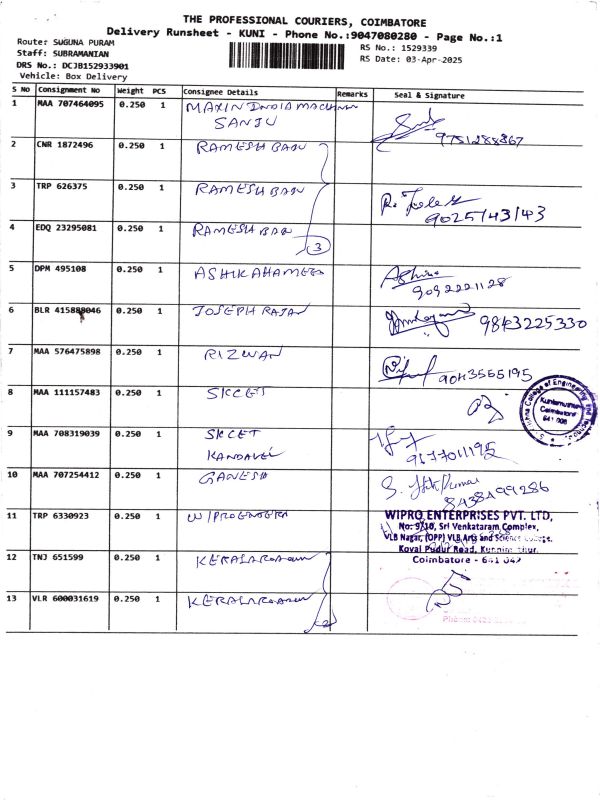 THE PROFESSIONAL COURIERS, COIMBATORE
Delivery Runsheet - KUNI - Phone No.:9047080280 - Page No.:1
Route: SUGUNA PURAM
Staff: SUBRAMANIAN
DRS No.: DCJB152933901
Vehicle: Box Delivery
RS No.: 1529339
RS Date: 03-Apr-2025
S No Consignment No Weight PCS Consignee Details Remarks Seal & Signature
1 MAA 707464095 0.250 1 MAXIN INDIA
SANJU 9751288867
2 CNR 1872496 0.250 1 RAMESH BABU
3 TRP 626375 0.250 1 RAMESH BABU
9025143143
4 EDQ 23295081 0.250 1 RAMESH BABU
3
5 DPM 495108 0.250 1 ASHIKAHAMED
9092221128
6 BLR 0.250 1 JOSEPH RAJAN 9843225330
7 MAA 576475898 0.250 1 RIZWAN 9043555195
8 MAA 111157483 0.250 1 SKCET
College of Engineering and
Coimbatore
641 008
9 MAA 708319039 0.250 1 SKCET
KANDAVEL
10 MAA 707254412 0.250 1 GANESH
8438499286
11 TRP 6330923 0.250 1
WIPRO ENTERPRISES PVT. LTD,
No: 9/10, Sri Venkataram Complex,
VLB Nagar, (OPP) VLB Arts and Science College,
Koval Pudur Road,
Coimbatore - 641 042
12 TNJ 651599 0.250 1
13 VLR 600031619 0.250 1
2
Phone: